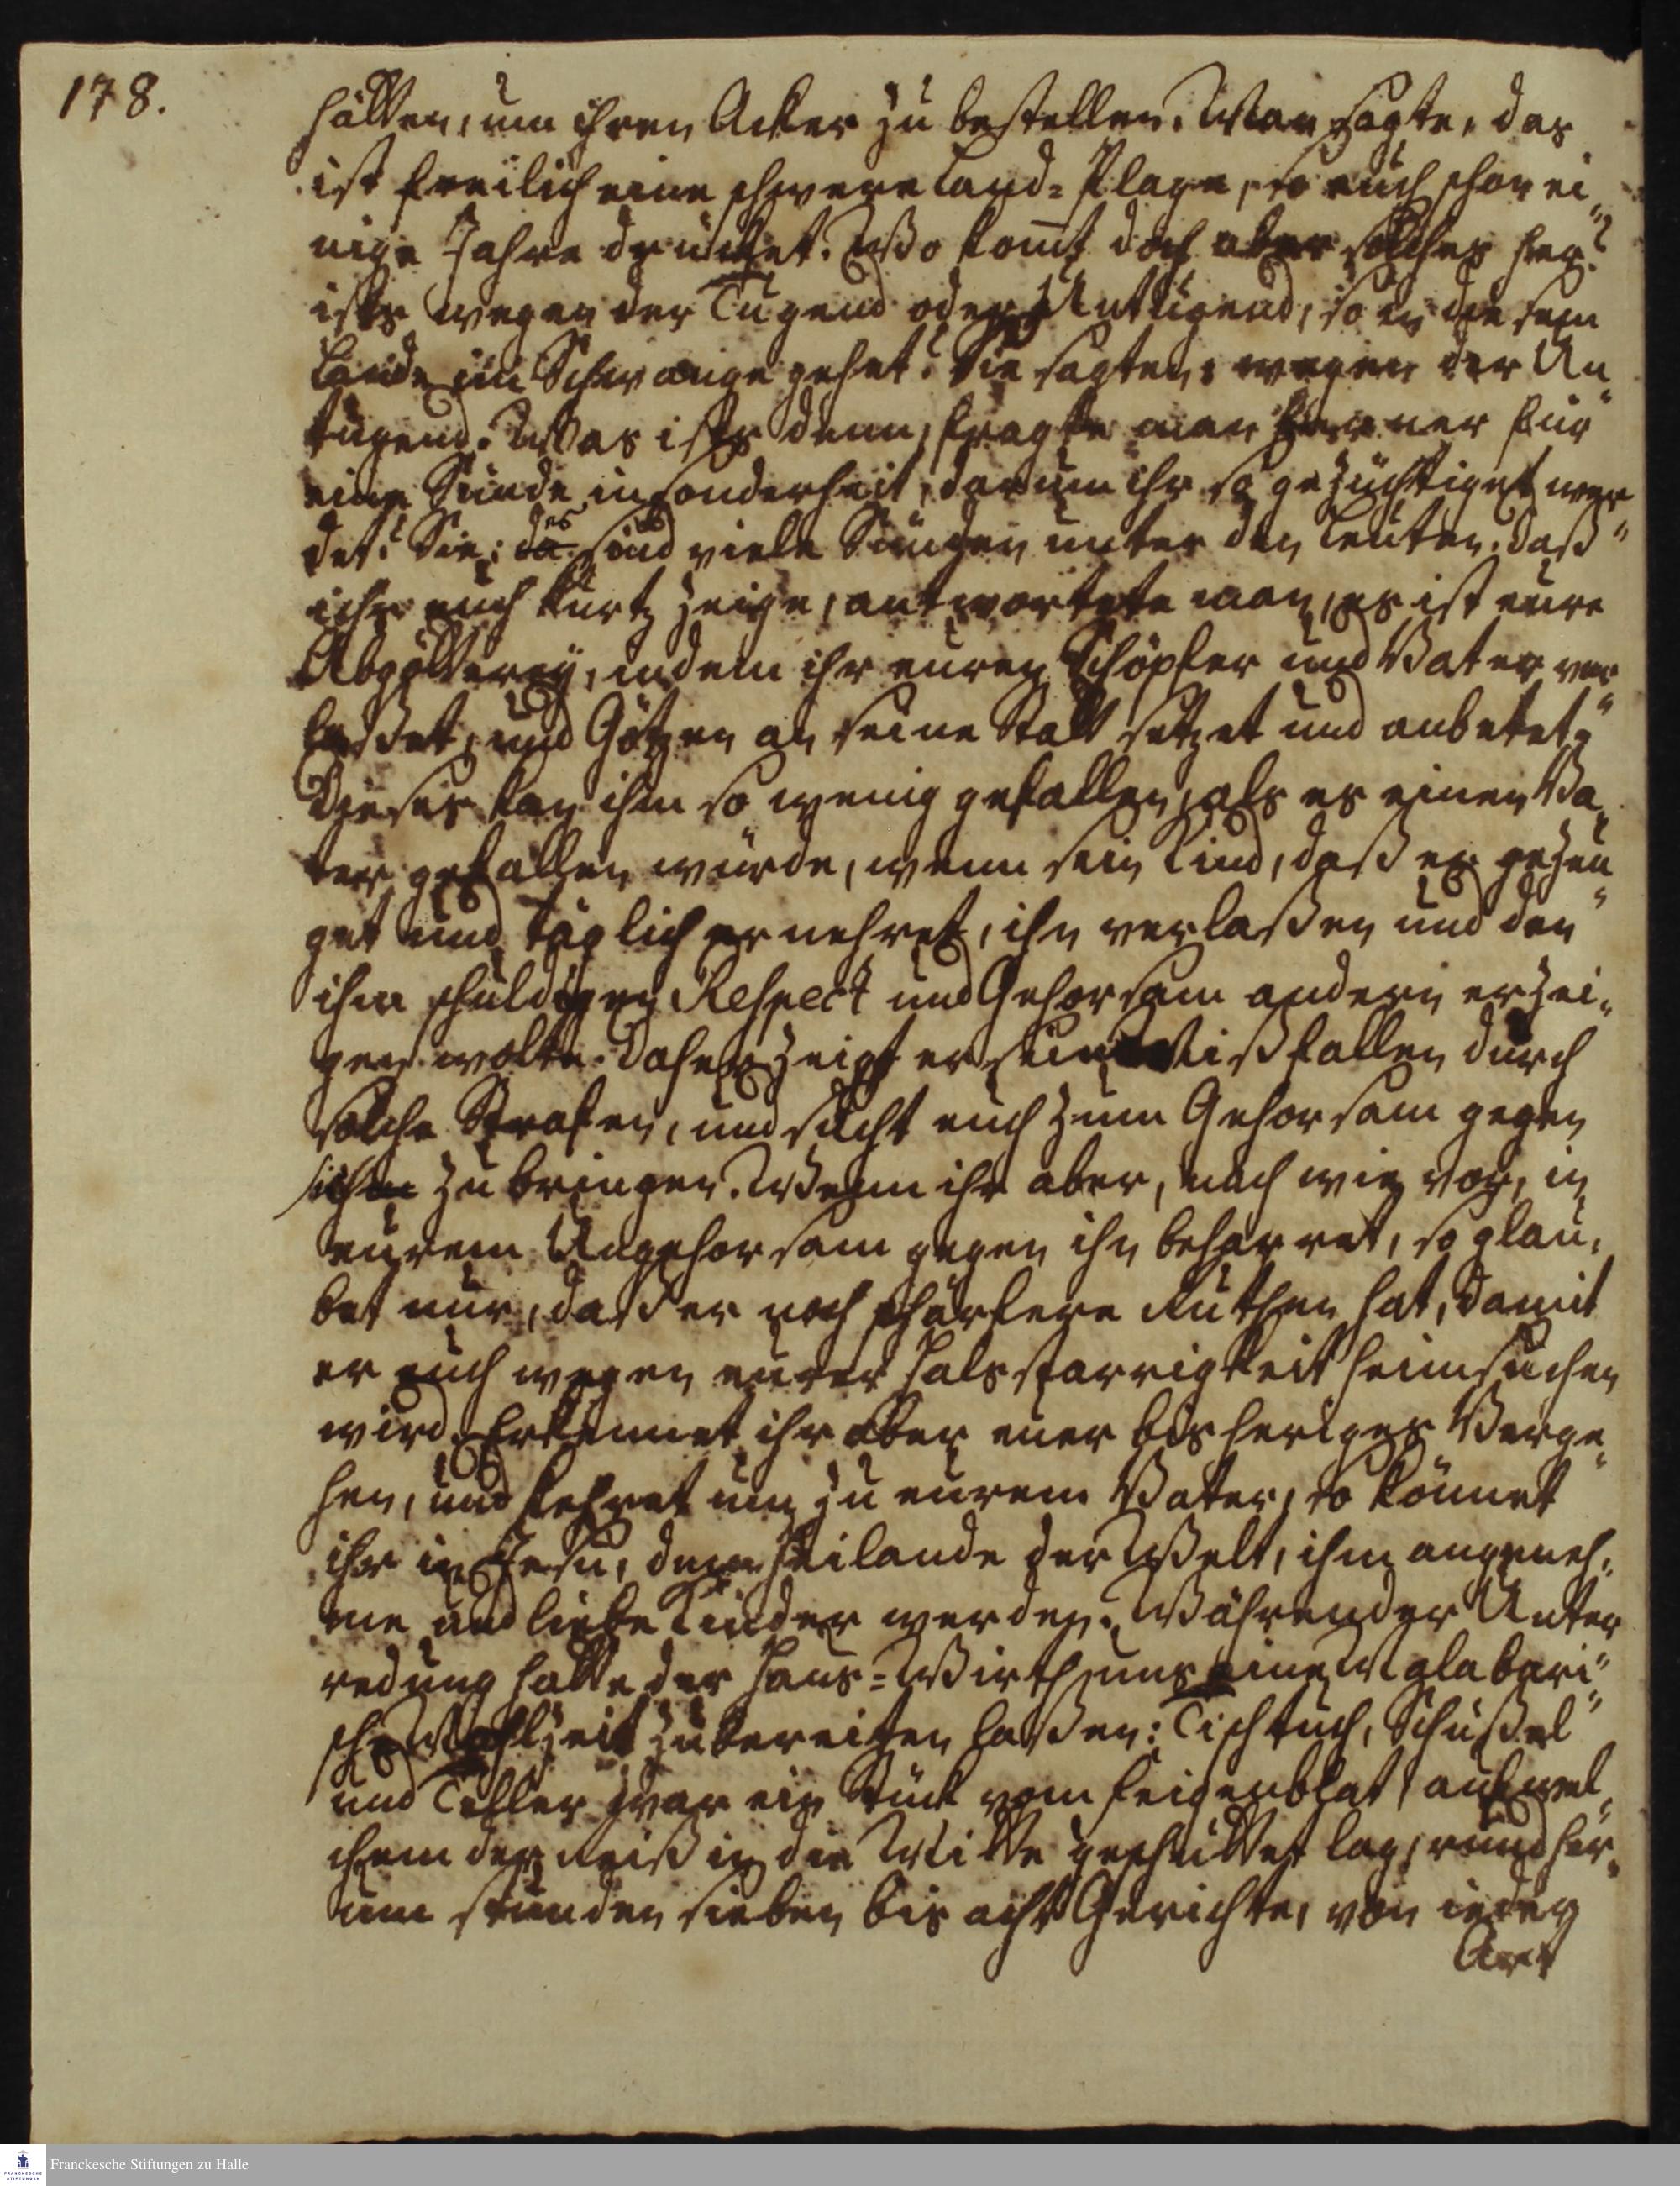 178.
hätten, um ihren Acker zu bestellen. Man sagte, das
ist freilich eine schwere Land-Plage, so euch schon ei„
nige Jahre drücket. Wo komt doch aber solches her?
ists wegen der Tugend oder Untugend, so in diesem
Lande im Schwange gehet? Sie sagten: wegen der Un„
tugend. Was ists denn, fragte man ferner für
eine Sünde insonderheit, darum ihr so gezüchtiget wer„
det? Sie: es sind viele Sünden unter den Leuten. Daß
ichs euch kurtz zeige, antwortete man, es ist eure
Abgötterey, indem ihr euren Schöpfer und Vater ver„
laßet, und Götzen an seine Statt setzet und anbetet.
Dieses kan ihm so wenig gefallen, als es einen Va„
ter gefallen würde, wenn sein Kind, daß er gezeu„
get und täglich ernehret, ihn verlaßen und den
ihm schuldigen Respect und Gehorsam andern erzei„
gen wolte. Daher zeigt er sein Mißfallen durch
solche Strafen, und sucht euch zum Gehorsam gegen
sich zu bringen. Wenn ihr aber, nach wie vor, in
eurem Ungehorsam gegen ihn beharret, so glau„
bet nur, daß er noch schärfere Ruthen hat, damit
er euch wegen eurer Halsstarrigkeit heimsuchen
wird. Erkennet ihr aber euer bisheriges Verge„
hen, und kehret um zu eurem Vater, so könnet
ihr in Jesu, dem Heilande der Welt, ihm angeneh„
me und liebe Kinder werden. Währender Unter„
redung hatte der Haus-Wirth uns eine Malabari„
sche Mahlzeit zubereiten laßen: Tischtuch, Schüßel
und Teller war ein Stück vom Feigenblat, auf wel„
chem der Reiß in die Mitte geschüttet lag, rund her„
um stunden sieben bis acht Gerichte, von jeder
Art
Franckesche Stiftungen zu Halle